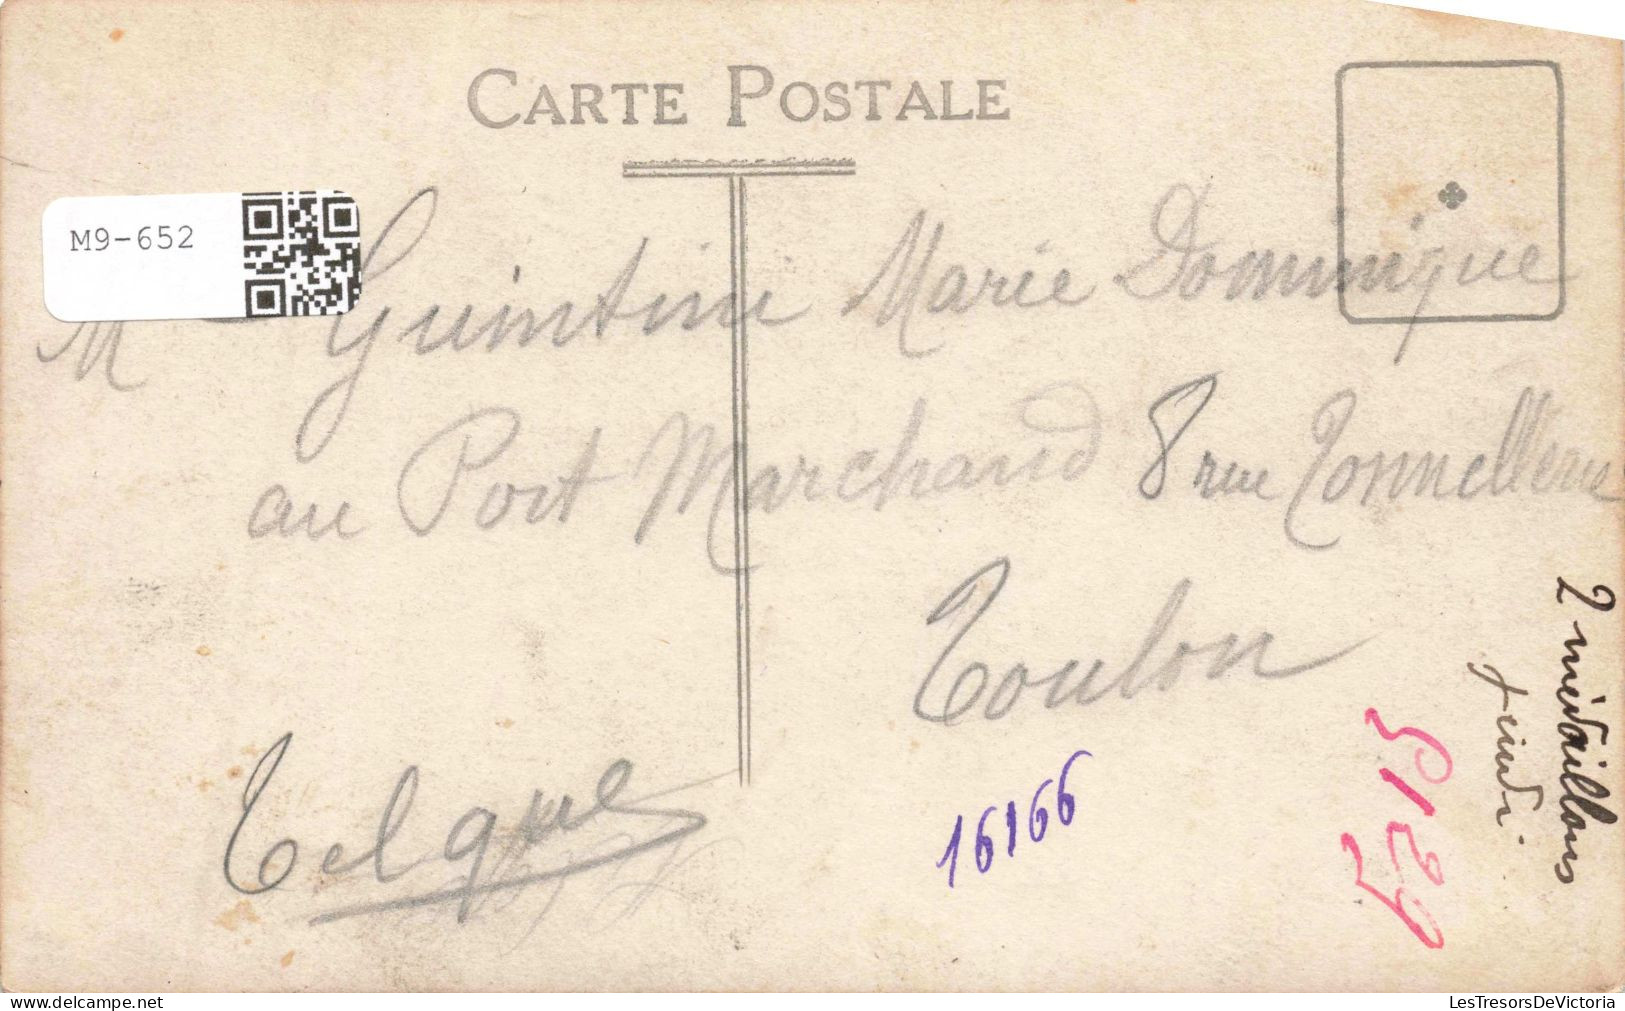 CARTE POSTALE
M9-652
M Guintini Marie Dominique
au Port Marchand 8 rue Tonnelleau
Toulon
Telque
16166
5129
2 médaillons
jeudi.
LesTresorsDeVictoria